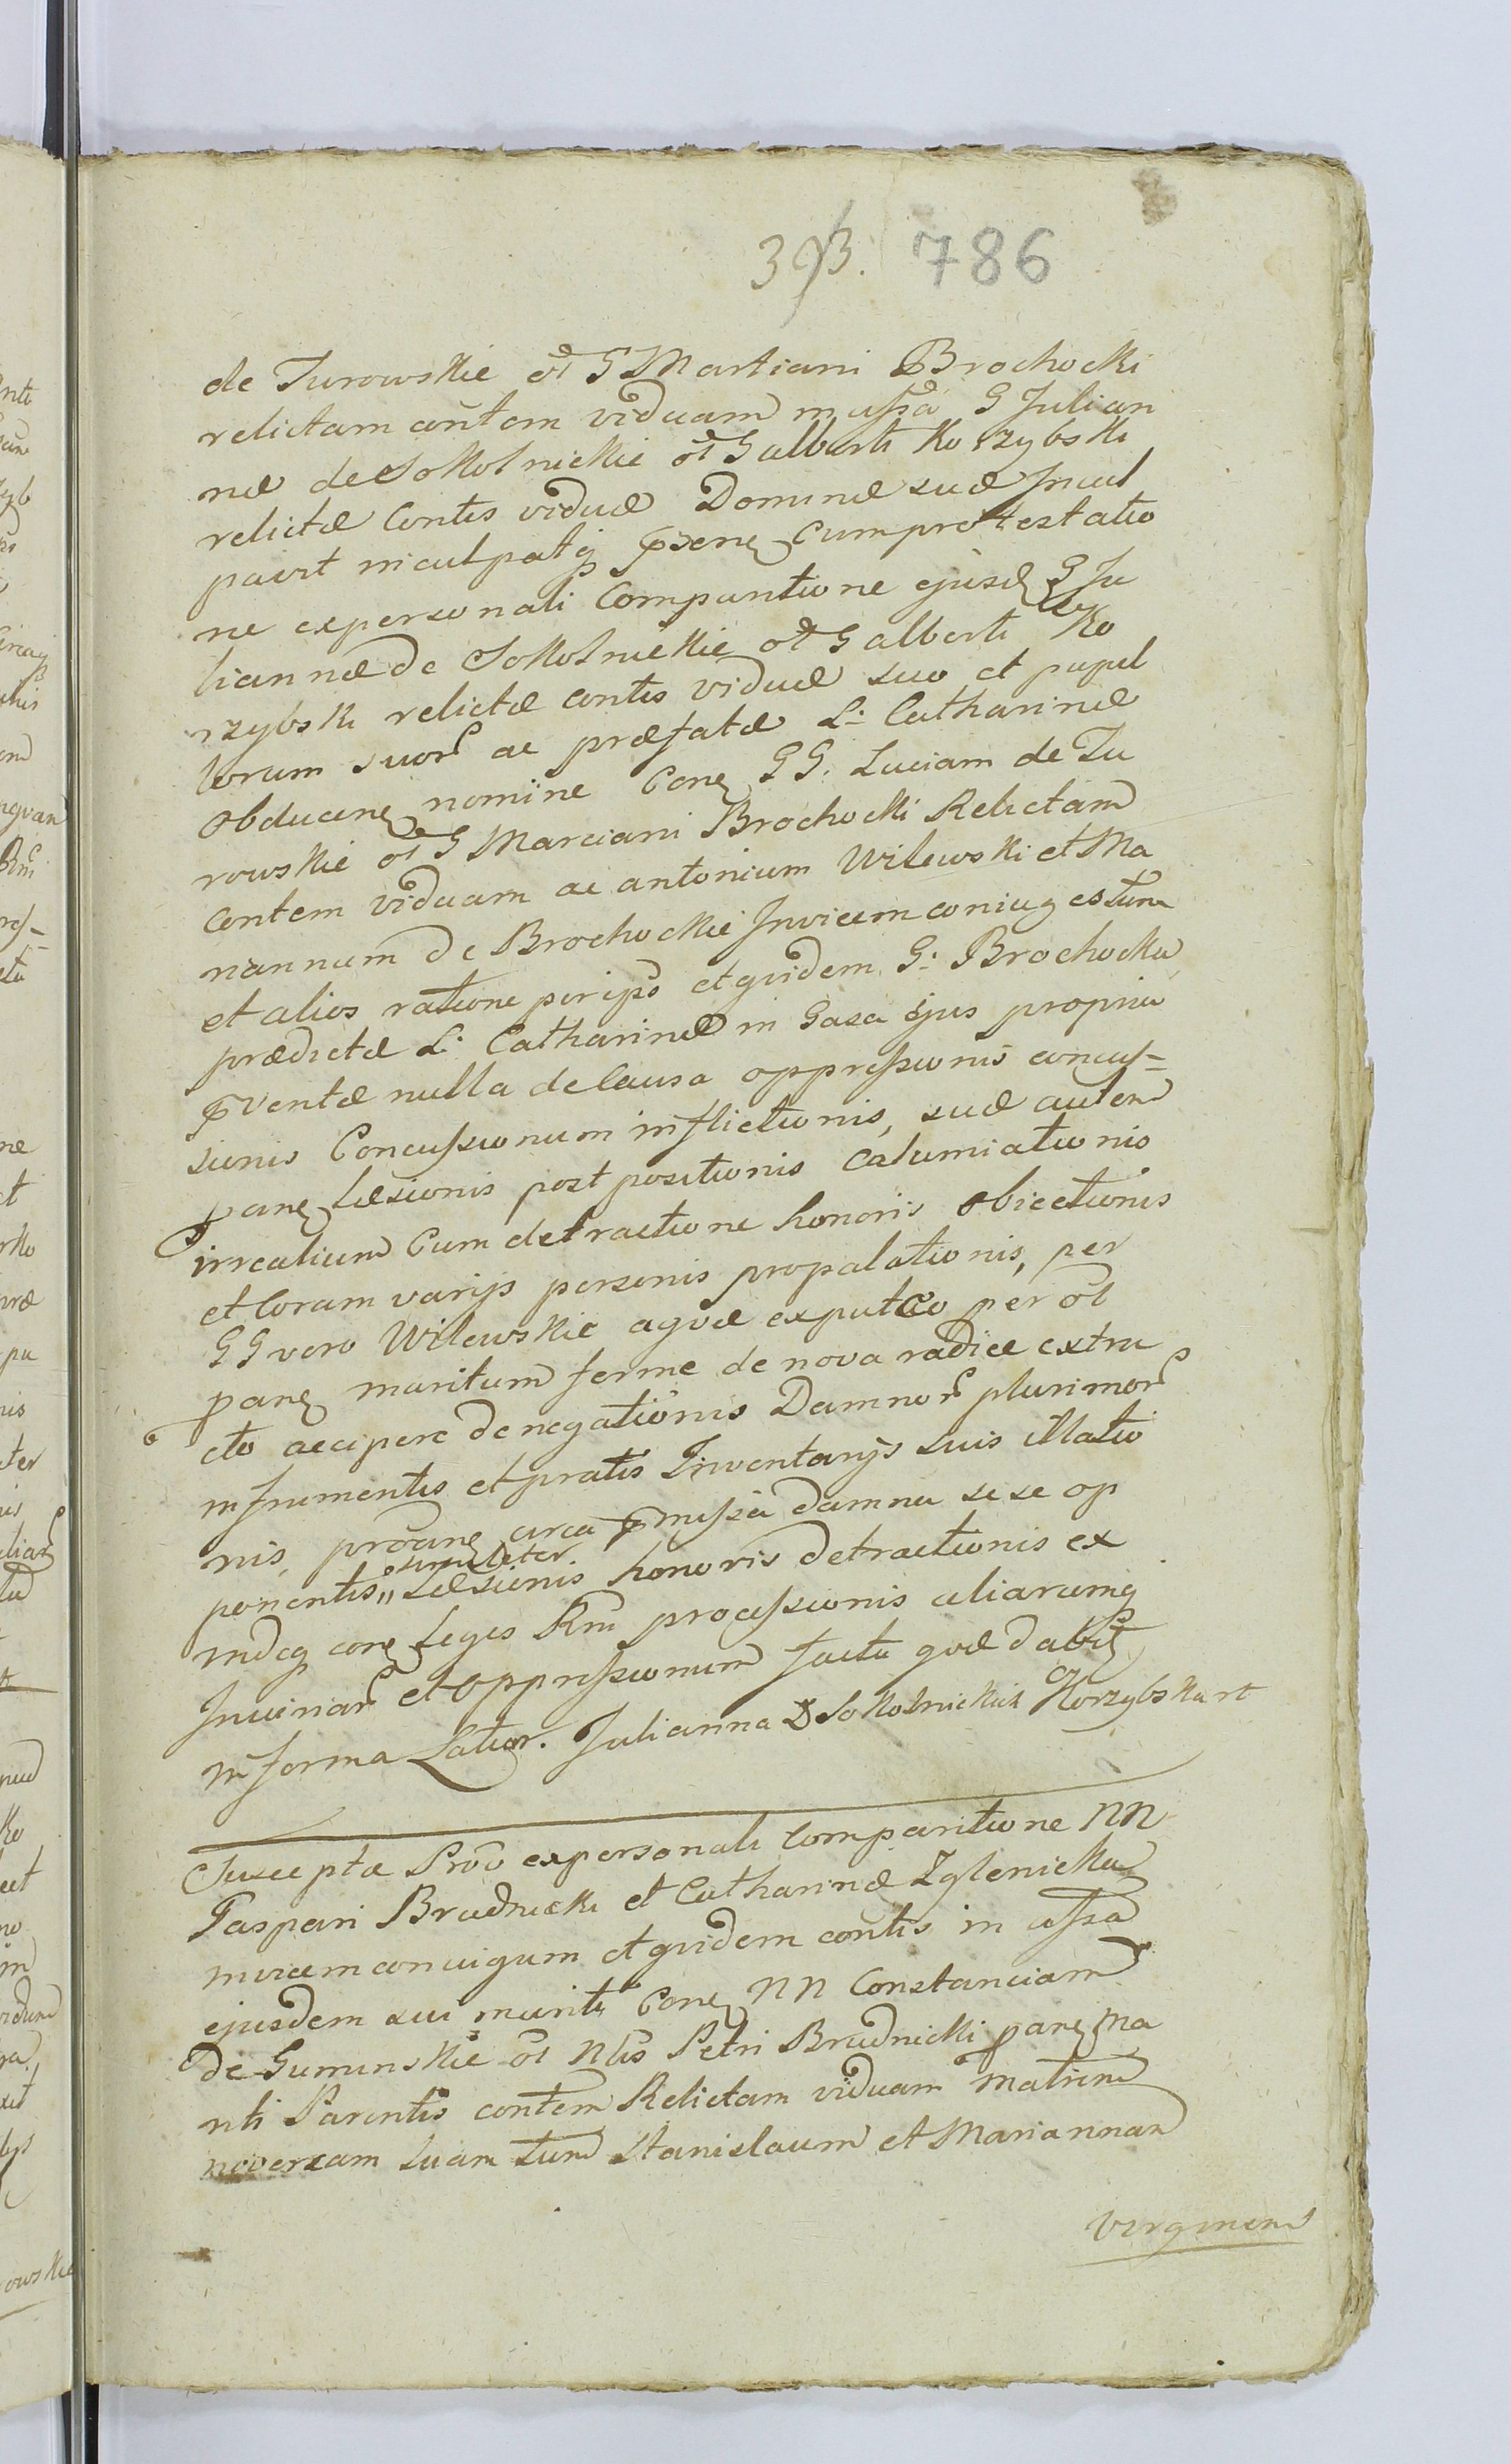 393. 786
de Turowskie ol G Martiani Brochocki
relictam contem viduam in assa G Julian
næ de Sokolnickie ol G alberti Korzybski
relictæ Contis viduæ Dominæ suæ Incul
pavit inculpatq pxens cum protestatio
ne ex personali Comparitione ejusd G Ju
liannæ de Sokolnickie ol G alberti Ko
rzybski relictæ contis viduæ suo et pupil
lorum suor ac præfatæ L: Catharinæ
obducens nomine Cons GG. Luciam de Tu
rowskie ol G Marciani Brochocki Relictam
Contem viduam ac antonium Wilewski et Ma
riannam de Brochockie Invicem coniuges tum
et alios ratione per ipso et quidem G: Brochocka
prædictæ L: Catharinæ in Casa ejus propria
pventæ nulla de Causa oppressionis concus-
sionis Concussionum inflictionis, suæ autem
pans Læsionis post positionis Calumiationis
irrealium Cum detractione honoris obiectionis
et Coram varijs personis propalationis, per
GG vero Wilewskie aquæ ex puteo per ol
pans maritum ferme de nova radice extra
cto accipere denegationis Damnor plurimor
in frumentis et pratis Inventarijs suis illatio
nis, proans circa pmissa damna sese op
ponentis simuliter Læsionis honoris detractionis ex
indeq cons Leges Rni processionis aliarumq
Iniuriar et oppressionum facta quæ dabit
in forma Latior. Julianna D Sokolnickich Korzybska rt
Suscepta Pro ex personali Comparitione NN
Gaspari Brudnicki et Catharinæ Zglenicka
invicem coniugum et quidem contis in assa
ejusdem sui mariti Cons NN Constanciam
De Guminskie ol Nlis Petri Brudnicki pans Ma
riti Parentis contem Relictam viduam matrem
novercam suam tum Stanislaum et Mariannam
virginem